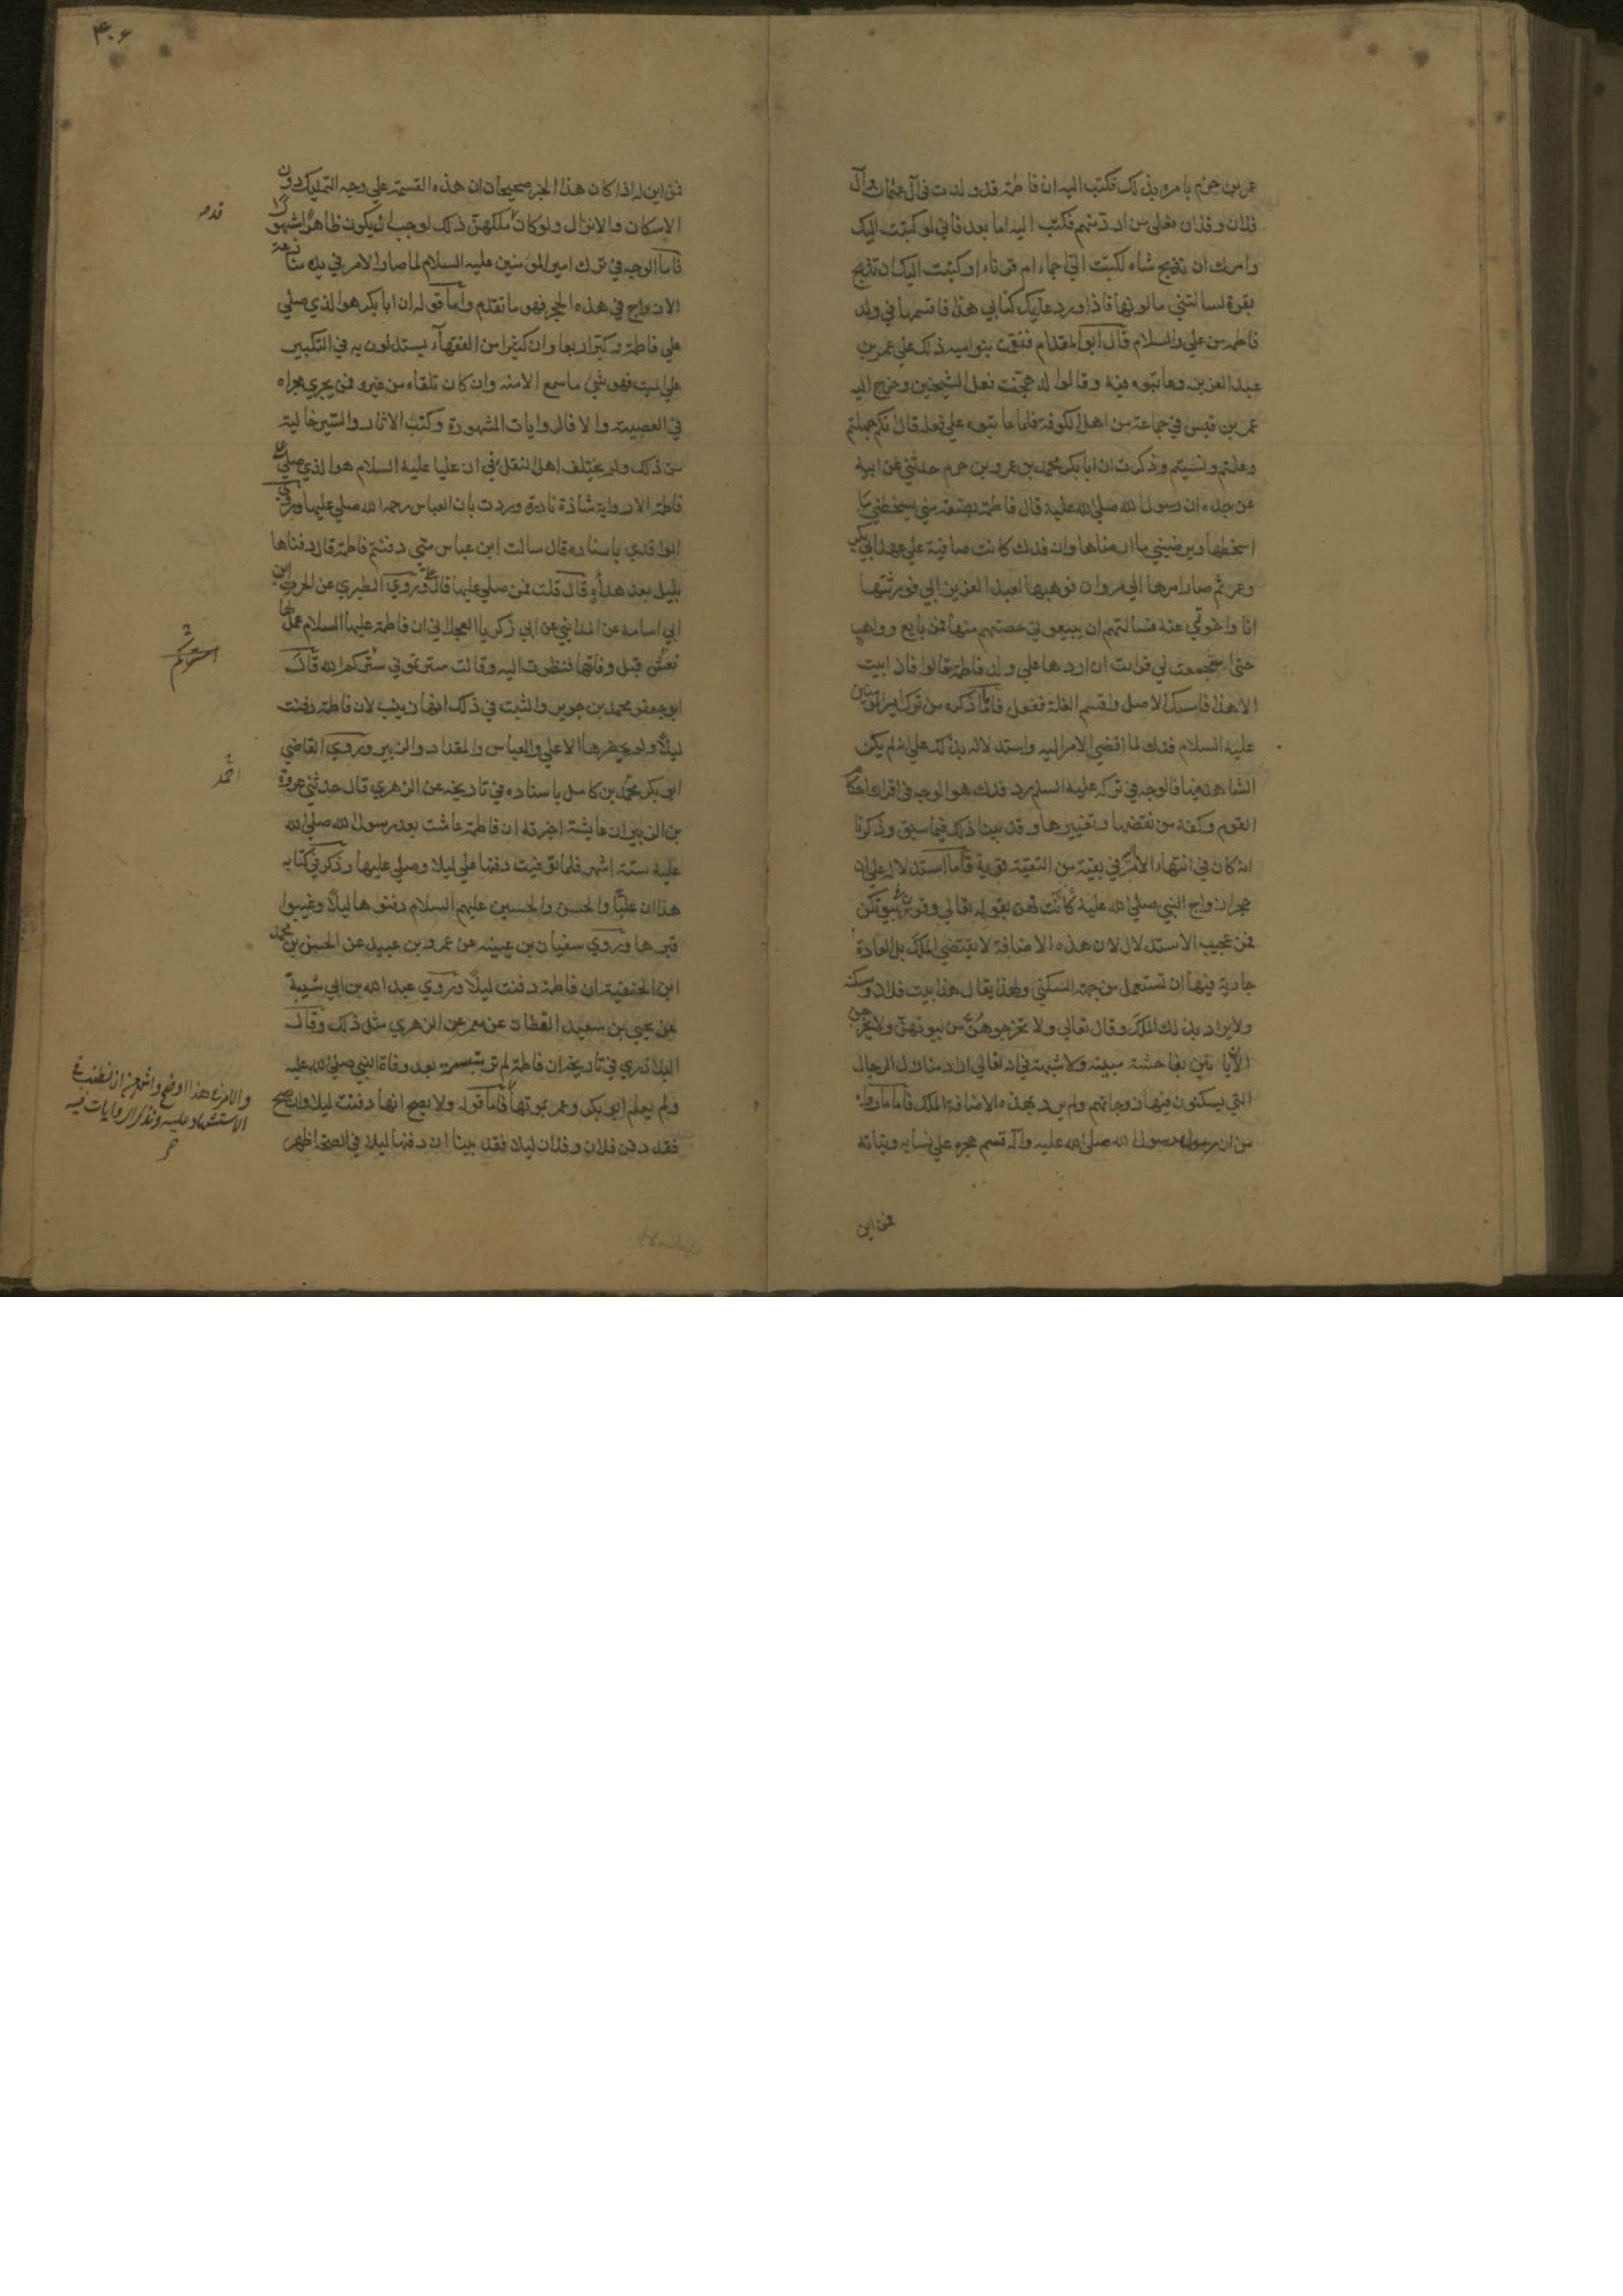 عمر بن حزم يامره بذلك فكتب اليه ان فاطمة قد ولدت في آل عثمان وآل
فلان وفلان فعلى من ارد منهم فكتب اليه اما بعد فاني لو كتبت اليك
وامرك ان تذبح شاه لكتبت الي اجماء ام قرناء او كتبت اليك ان تذبح
بقرة لسالتني ما لونها فاذا ورد عليك كتابي هذا فاقسمها في ولد
فاطمه من علي والسلام قال ابو المقدام فنقمت بنو اميه ذلك على عمر بن
عبد العزيز وعاتبوه فيه وقالوا له هجنت فعل الشيخين وخرج اليه
عمر بن قيس في جماعة من اهل الكوفة فلما عاتبوه على فعله قال انكم جهلتم
وعلمتم ونسيتم وذكرت ان ابا بكر محمد بن عمرو بن حزم حدثني عن ابيه
عن جده ان رسول الله صلى الله عليه قال فاطمة بضعة مني يسخطني ما
اسخطها ويرضيني ما ارضاها وان فدك كانت صافية على عهد ابي بكر
وعمر ثم صار امرها الى مروان فوهبها لعبد العزيز ابي فورثتها
انا واخوتي عنه فسالتهم ان يبيعوني حصتهم منها فمن بايع وواهب
حتى استجمعت لي فرايت ان اردها على ولد فاطمة قالوا فان ابيت
الا هذا فامسك الاصل واقسم الغلة ففعل فاما ما ذكره من ترك امير المومنين
عليه السلام فدك لما افضى الامر اليه واستدلاله بذلك على انه لم يكن
الشاهد فيها فالوجه في تركه عليه السلم رد فدك هو الوجه في اقراره احكام
القوم وكفه من نقضها وتغييرها وقد بينا ذلك فيما سبق وذكرنا
انه كان في انتهاء الامر في بقية من التقية قوية فاما استدلاله على ان
حجر ازواج النبي صلى الله عليه كانت لهن بقوله تعالى وقرن في بيوتكن
فمن عجيب الاستدلال لان هذه الاضافة لا يقتضي الملك بل العادة
جارية فيها ان تستعمل من جهة السكنى ولهذا يقال هذا بيت فلان ومسكنه
ولا يراد بذلك الملك وقال تعالى ولا تخرجوهن من بيوتهن ولا يخرجن
الا ان ياتين بفاحشة مبينه ولا شبهة في انه تعالى اراد منازل الرجال
التي يسكنون فيها زوجاتهم ولم يرد بهذه الاضافة الملك فاما ما رواه
من ان رسول الله صلى الله عليه وآله قسم حجره على نسايه وبناته
فمن اين
۴۰۶
فمن اين له اذا كان هذا الخبر صحيحا ان هذه القسمة على وجه التمليك دون
الاسكان والانزال ولو كان ملكهن ذلك لوجب ان يكون ظاهرا مشهورا
فاما الوجه في ترك امير المومنين عليه السلام لما صار الامر في يده منازعة
الازواج في هذه الحجر فهو ما تقدم واما قوله ان ابا بكر هو الذي صلى
على فاطمة وكبر اربعا وان كثيرا من الفقهاء يستدلون به في التكبير
على الميت فهو شي ما سمع الا منه وان كان تلقاه من غيره فمن يجري مجراه
في العصبية والا فالروايات المشهورة وكتب الاثار والسير خالية
من ذلك ولم يختلف اهل النقل في ان عليا عليه السلام هو الذي صلى على
فاطمة الا رواية شاذة نادرة وردت بان العباس رحمه الله صلى عليها وروى
الواقدي باسناده قال سالت ابن عباس متى دفنتم فاطمة قال دفناها
بليل بعد هدأة قال قلت فمن صلى عليها قال علي وروى الطبري عن الحرث بن
ابي اسامه عن المدايني عن ابي زكريا العجلاني ان فاطمة عليها السلام عمل لها
نعش قبل وفاتها فنظرت اليه وقالت سترتموني ستركم الله قال
ابو جعفر محمد بن جرير والثبت في ذلك انها زينب لان فاطمة دفنت
ليلا ولم يحضرها الا علي والعباس والمقداد والزبير وروى القاضي
ابو بكر محمد بن كامل باسناده في تاريخه عن الزهري قال حدثني عروة
بن الزبير ان عايشة اخبرته ان فاطمة عاشت بعد رسول الله صلى الله
عليه ستة اشهر فلما توفيت دفنها علي ليلا وصلى عليها وذكر في كتابه
هذا ان عليا والحسن والحسين عليهم السلام دفنوها ليلا وغيبوا
قبرها وروى سفيان بن عيينه عن عمرو بن عبيد عن الحسن بن محمد
ابن الحنفية ان فاطمة دفنت ليلا وروى عبد الله بن ابي شيبة
عن يحيى بن سعيد القطان عن معمر عن الزهري مثل ذلك وقال
البلاذري في تاريخه ان فاطمة لم تر متبسمة بعد وفاة النبي صلى الله عليه
ولم يعلم ابو بكر وعمر بموتها فاما قوله ولا يصح انها دفنت ليلا وان صح
فقد دفن فلان وفلان ليلا فقد بينا ان دفنها ليلا في الصحة اظهر
احمد
والامر في هذا اوضح واشهر من ان نطنب في
الاستشهاد عليه ونذكر الروايات فيه